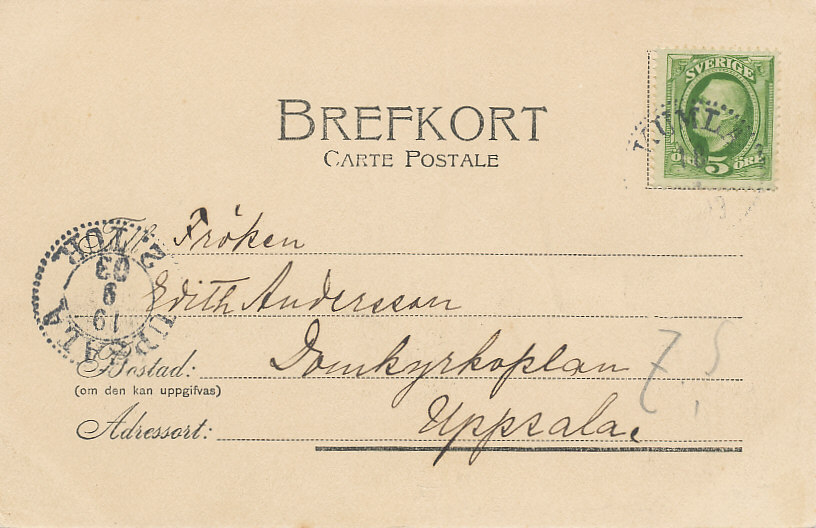 SVERIGE
BREFKORT
KUMLA
CARTE POSTALE
ÖRE 5 ÖRE
Till Fröken
2. TUR
03
9
19
UPSALA
Edith Andersson
Bostad: Domkyrkoplan
(om den kan uppgifvas)
Adressort: Uppsala